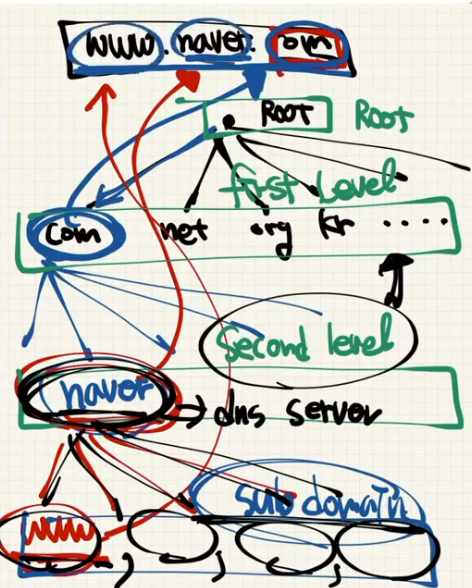 www. naver. com
Root Root
first Level
com net org kr .....
Second level
naver → dns server
sub domain
www , , ,